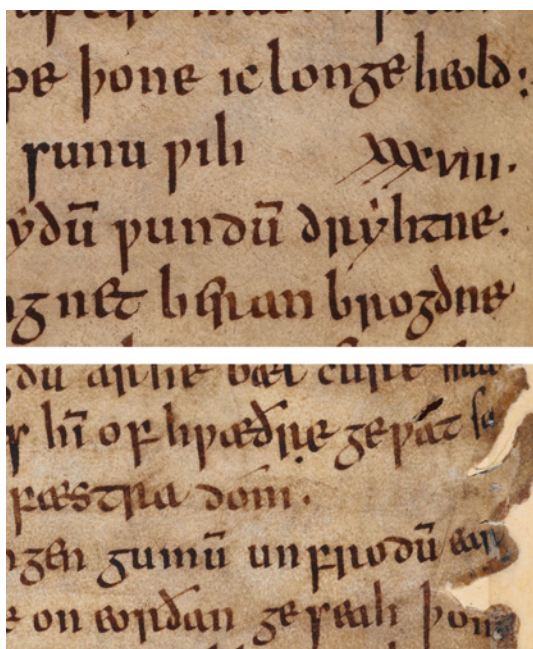 pe þone ic longe heold:
sunu ƿih xxxviii.
ydū ƿundū dryhtne.
gnet beran brogdne
gdū ær he bæl cure
s hī of hƿæðre geƿat sa
fæstra dom.
gen gumū unfrodū earf
e on eorðan geseah þon